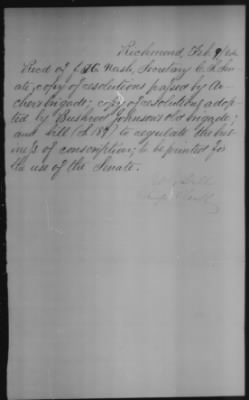 Richmond, Feb. 9/64
Recd of J. H. Nash, Secretary C. S. Sen-
ate, copy of resolutions passed by Ar-
cher's brigade; copy of resolutions adop-
ted by Bushrod Johnson's old brigade;
and bill (S. 189) to regulate the bus-
iness of conscription; to be printed for
the use of the Senate.